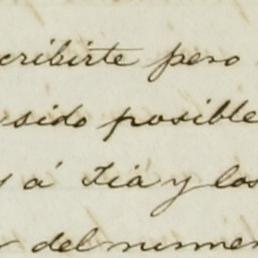 cribirte pero
sido posible
á tia y los
del numer